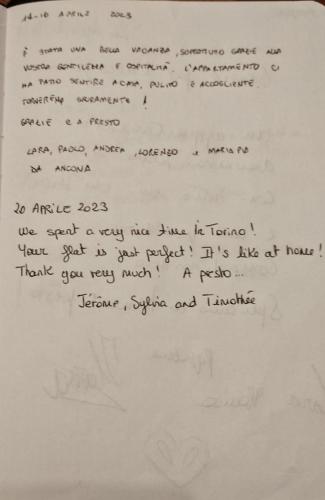 14-16 APRILE 2023
È STATA UNA BELLA VACANZA, SOPRATTUTO GRAZIE ALLA
VOSTRA GENTILEZZA E OSPITALITÀ. L'APPARTAMENTO CI
HA FATTO SENTIRE A CASA, PULITO E ACCOGLIENTE.
TORNEREMO SICURAMENTE!
GRAZIE E A PRESTO
LARA, PAOLO, ANDREA, LORENZO e MARIA PIA
DA ANCONA
20 APRILE 2023
We spent a very nice time in Torino!
Your flat is just perfect! It's like at home!
Thank you very much! A presto...
Jérôme, Sylvia and Timothée